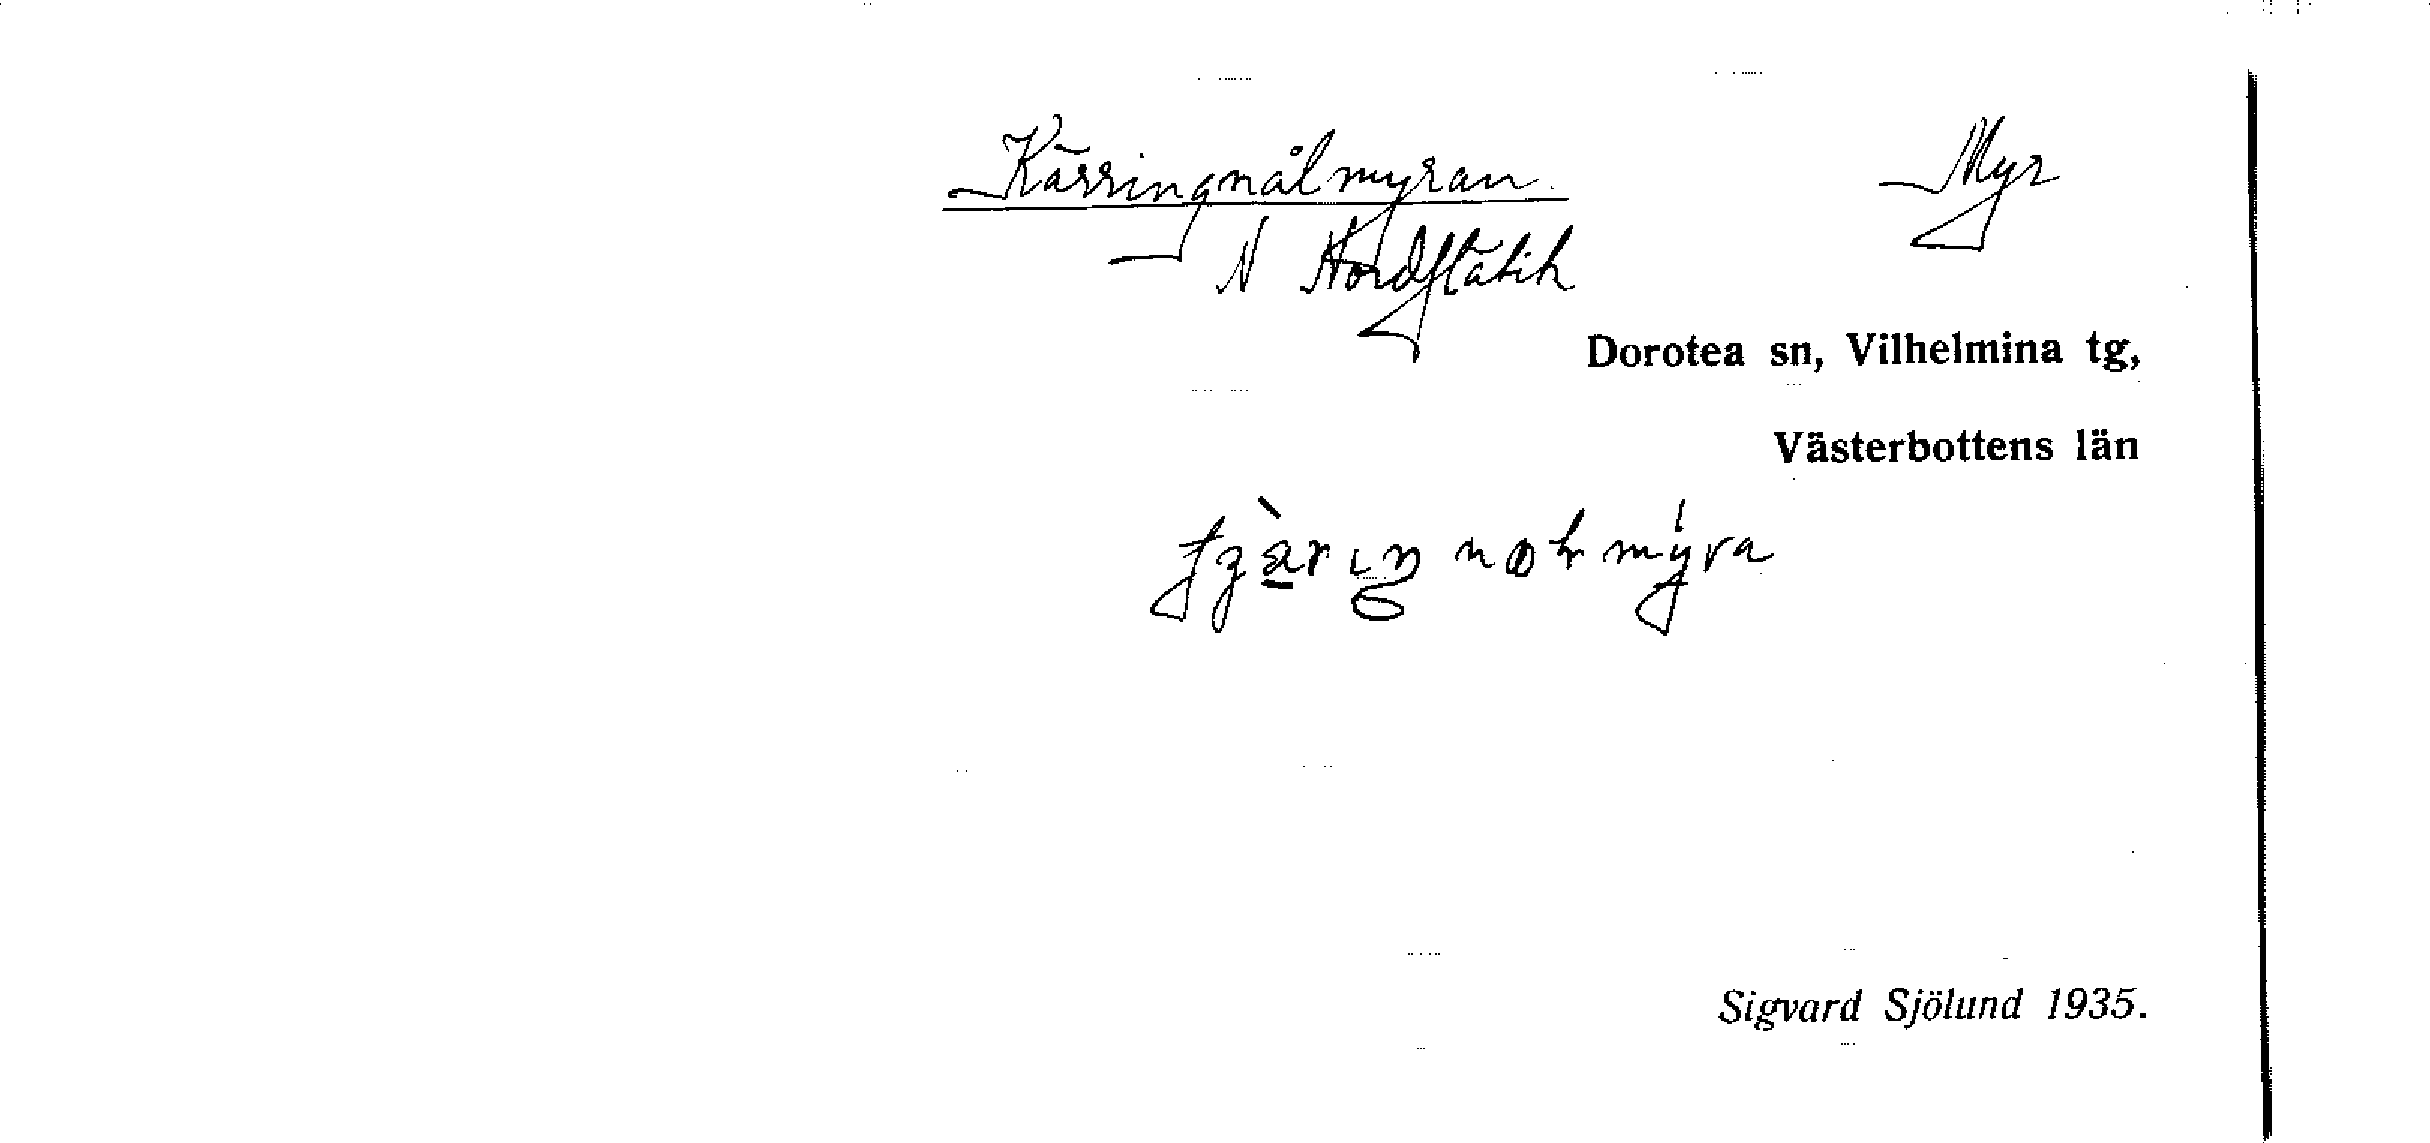 Kärringnålmyran. Myr
N
Dorotea sn, Vilhelmina tg,
Västerbottens län
Sigvard Sjölund 1935.